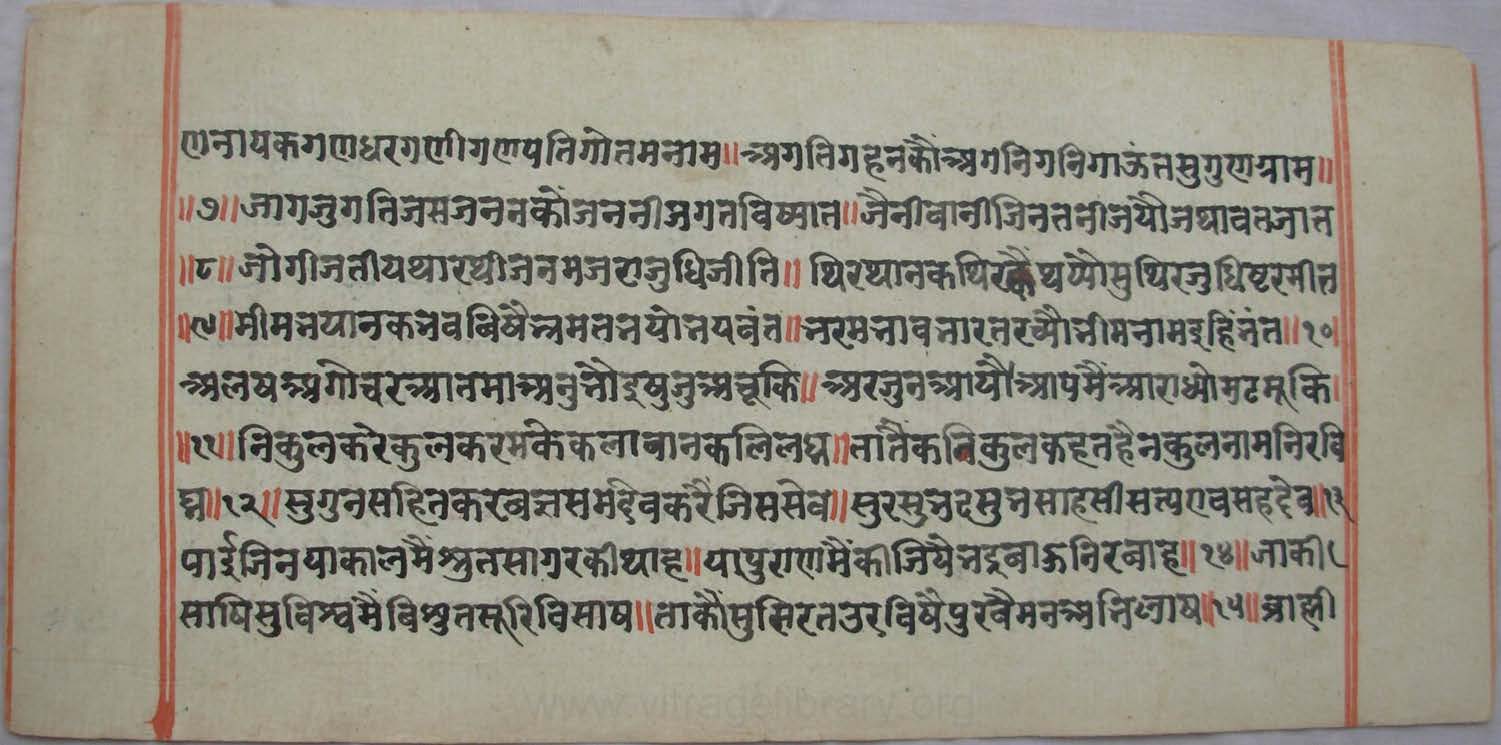 णनायकगणधरगणीगणपतिगोतमनाम॥अगतिगहनकौंअगनिगनिगाऊंतसुगुणग्राम॥
॥७॥जागजुगतिजसजननकौंजननीजगतविष्यात॥जैनीवानीजिनतनीजयौजथावतजात
॥८॥जोगीजतीयथारथीजनमजराजुधिजीति॥थिरथानकथिरकैंथप्यौसुथिरजुधिष्टरमीत
॥९॥भीमभयानकभवविषैंभ्रमतनयोभयवंत॥भरमभावभारतरच्यौभीमनामइहिंभंत॥१०
अलषअगोचरआतमाअनुभौइषुजुअचूकि॥अरजुनआयौआपमैंआराध्योमटमूकि॥
॥११॥निकुलकरेकुलकरमकेकलावानकलिलघ्न॥तातैंकविकुलकहतहैनकुलनामनिरवि
घ्न॥१२॥सुगुनसहितकरबलसमदेवकरैंजिससेव॥सुरसुभटसुभसाहसीसत्यएवसहदेव॥१३
पाईजिनयाकालमैंश्रुतसागरकीथाह॥यापुराणमैंकीजियैभद्रबाऊनिरबाह॥१४॥जाकी
साषिसुविश्वमैंविश्रुतसूरिविसाष॥ताकौंसुसिरतउरविषैंपुरवैमनअभिलाष॥१५॥ब्राह्मी
www.vitragelibrary.org